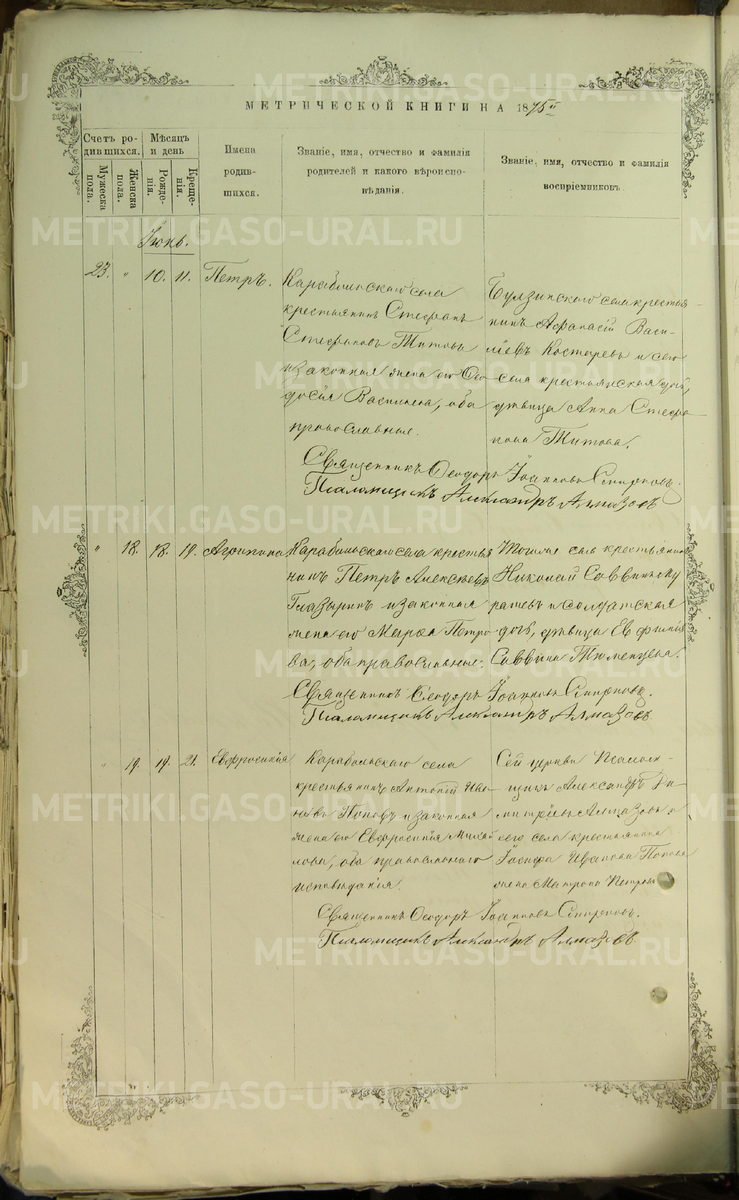 METRIKI.GASO-URAL.RU
МЕТРИЧЕСКОЙ КНИГИ НА 1875й
Счетъ родившихся.
Мужеска пола.
Женска пола.
Мѣсяцъ и день
Рожденія.
Крещенія.
Имена
родив-
шихся.
Званіе, имя, отчество и фамилія
родителей и какого вѣроиспо-
вѣданія.
Званіе, имя, отчество и фамилія
воспріемниковъ
Іюнь.
23. " 10. 11. Петръ.
Карабольскаго села
крестьянинъ Стефанъ
Стефановъ Титовъ
и законная жена его Ѳео
досія Васильева, оба
православные.
Булзинскаго села крестья-
нинъ Афанасій Васи-
ліевъ Костаревъ и сего
села крестьянская
дѣвица Анна Стефа-
нова Титова.
Священникъ Ѳеодоръ Іоанновъ Спиронов.
Псаломщикъ Александръ Алмазовъ
" 18. 18. 19. Агрипина
Карабольскаго села крестья
нинъ Петръ Алексѣевъ
Глазыринъ и законная
жена его Марѳа Петро
ва, оба православные.
Тогоже села крестьянинъ
Николай Саввинъ
и солдатская
дочь, дѣвица Евфимія
Саввина Тюменцева.
Священникъ Ѳеодоръ Іоанновъ
Псаломщикъ Александръ Алмазовъ
" 19. 19. 21. Евфросинія
Карабольскаго села
крестьянинъ Антоній Ива
новъ Поповъ и законная
жена его Евфросинія Михай
лова, оба православнаго
исповѣданія.
Сей церкви Псалом-
щикъ Александръ Ди-
митріевъ Алмазовъ и
сего села крестьянина
Іосифа Иванова Попова
жена Матрона Петрова
Священникъ Ѳеодоръ Іоанновъ
Псаломщикъ Александръ Алмазовъ